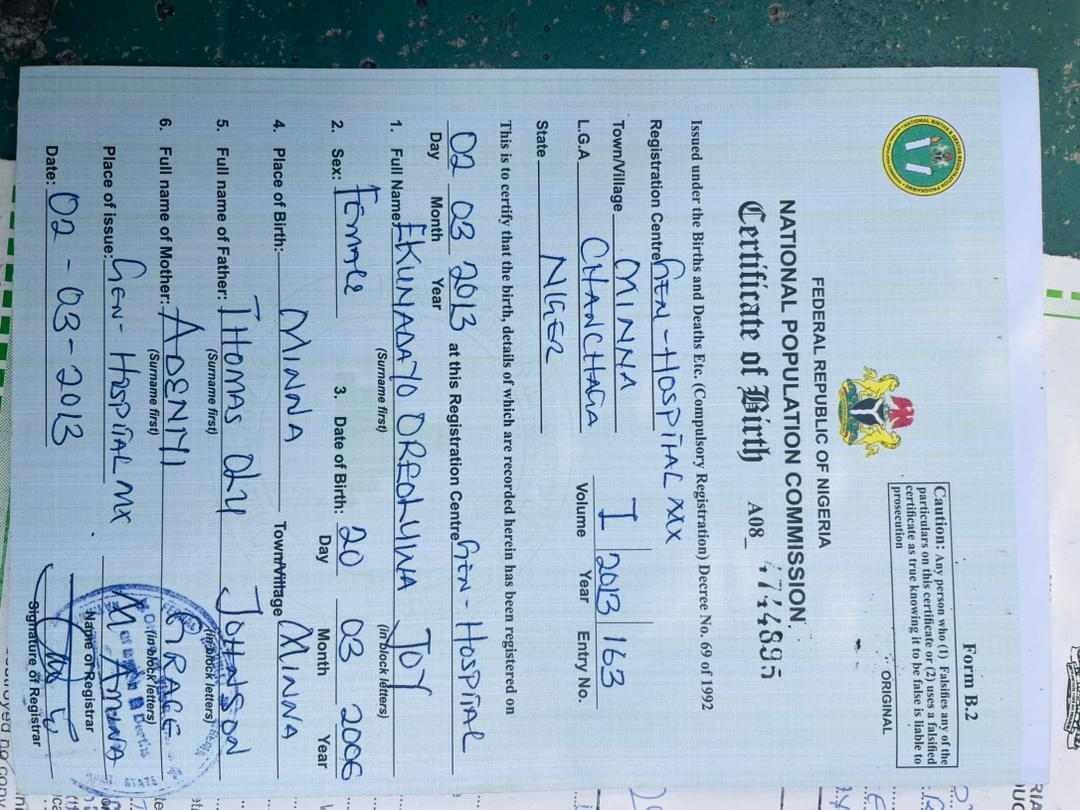 Form B.2
Caution: Any person who (1) Falsifies any of the
particulars on this certificate or (2) uses a falsified
certificate as true knowing it to be false is liable to
prosecution
ORIGINAL
FEDERAL REPUBLIC OF NIGERIA
NATIONAL POPULATION COMMISSION.
Certificate of Birth A08_
Issued under the Births and Deaths Etc. (Compulsory Registration) Decree No. 69 of 1992
Registration Centre GEN-HOSPITAL MX
Town/Village MINNA I 2013 163
L.G.A CHANCHAGA Volume Year Entry No.
State NIGER
This is to certify that the birth, details of which are recorded herein has been registered on
02 03 2013 at this Registration Centre GEN-HOSPITAL
Day Month Year
1. Full Name: EKUNADAYO JOY
(Surname first) (in block letters)
2. Sex: Female 3. Date of Birth: 20 03 2006
Day Month Year
4. Place of Birth: MINNA Town/Village MINNA
5. Full name of Father: THOMAS JOHNSON
(Surname first) (in block letters)
6. Full name of Mother: ADENIYI GRACE
(Surname first) (in block letters)
Place of issue: GEN-HOSPITAL MX AMINA
Name of Registrar
Date: 02-03-2013
Signature of Registrar